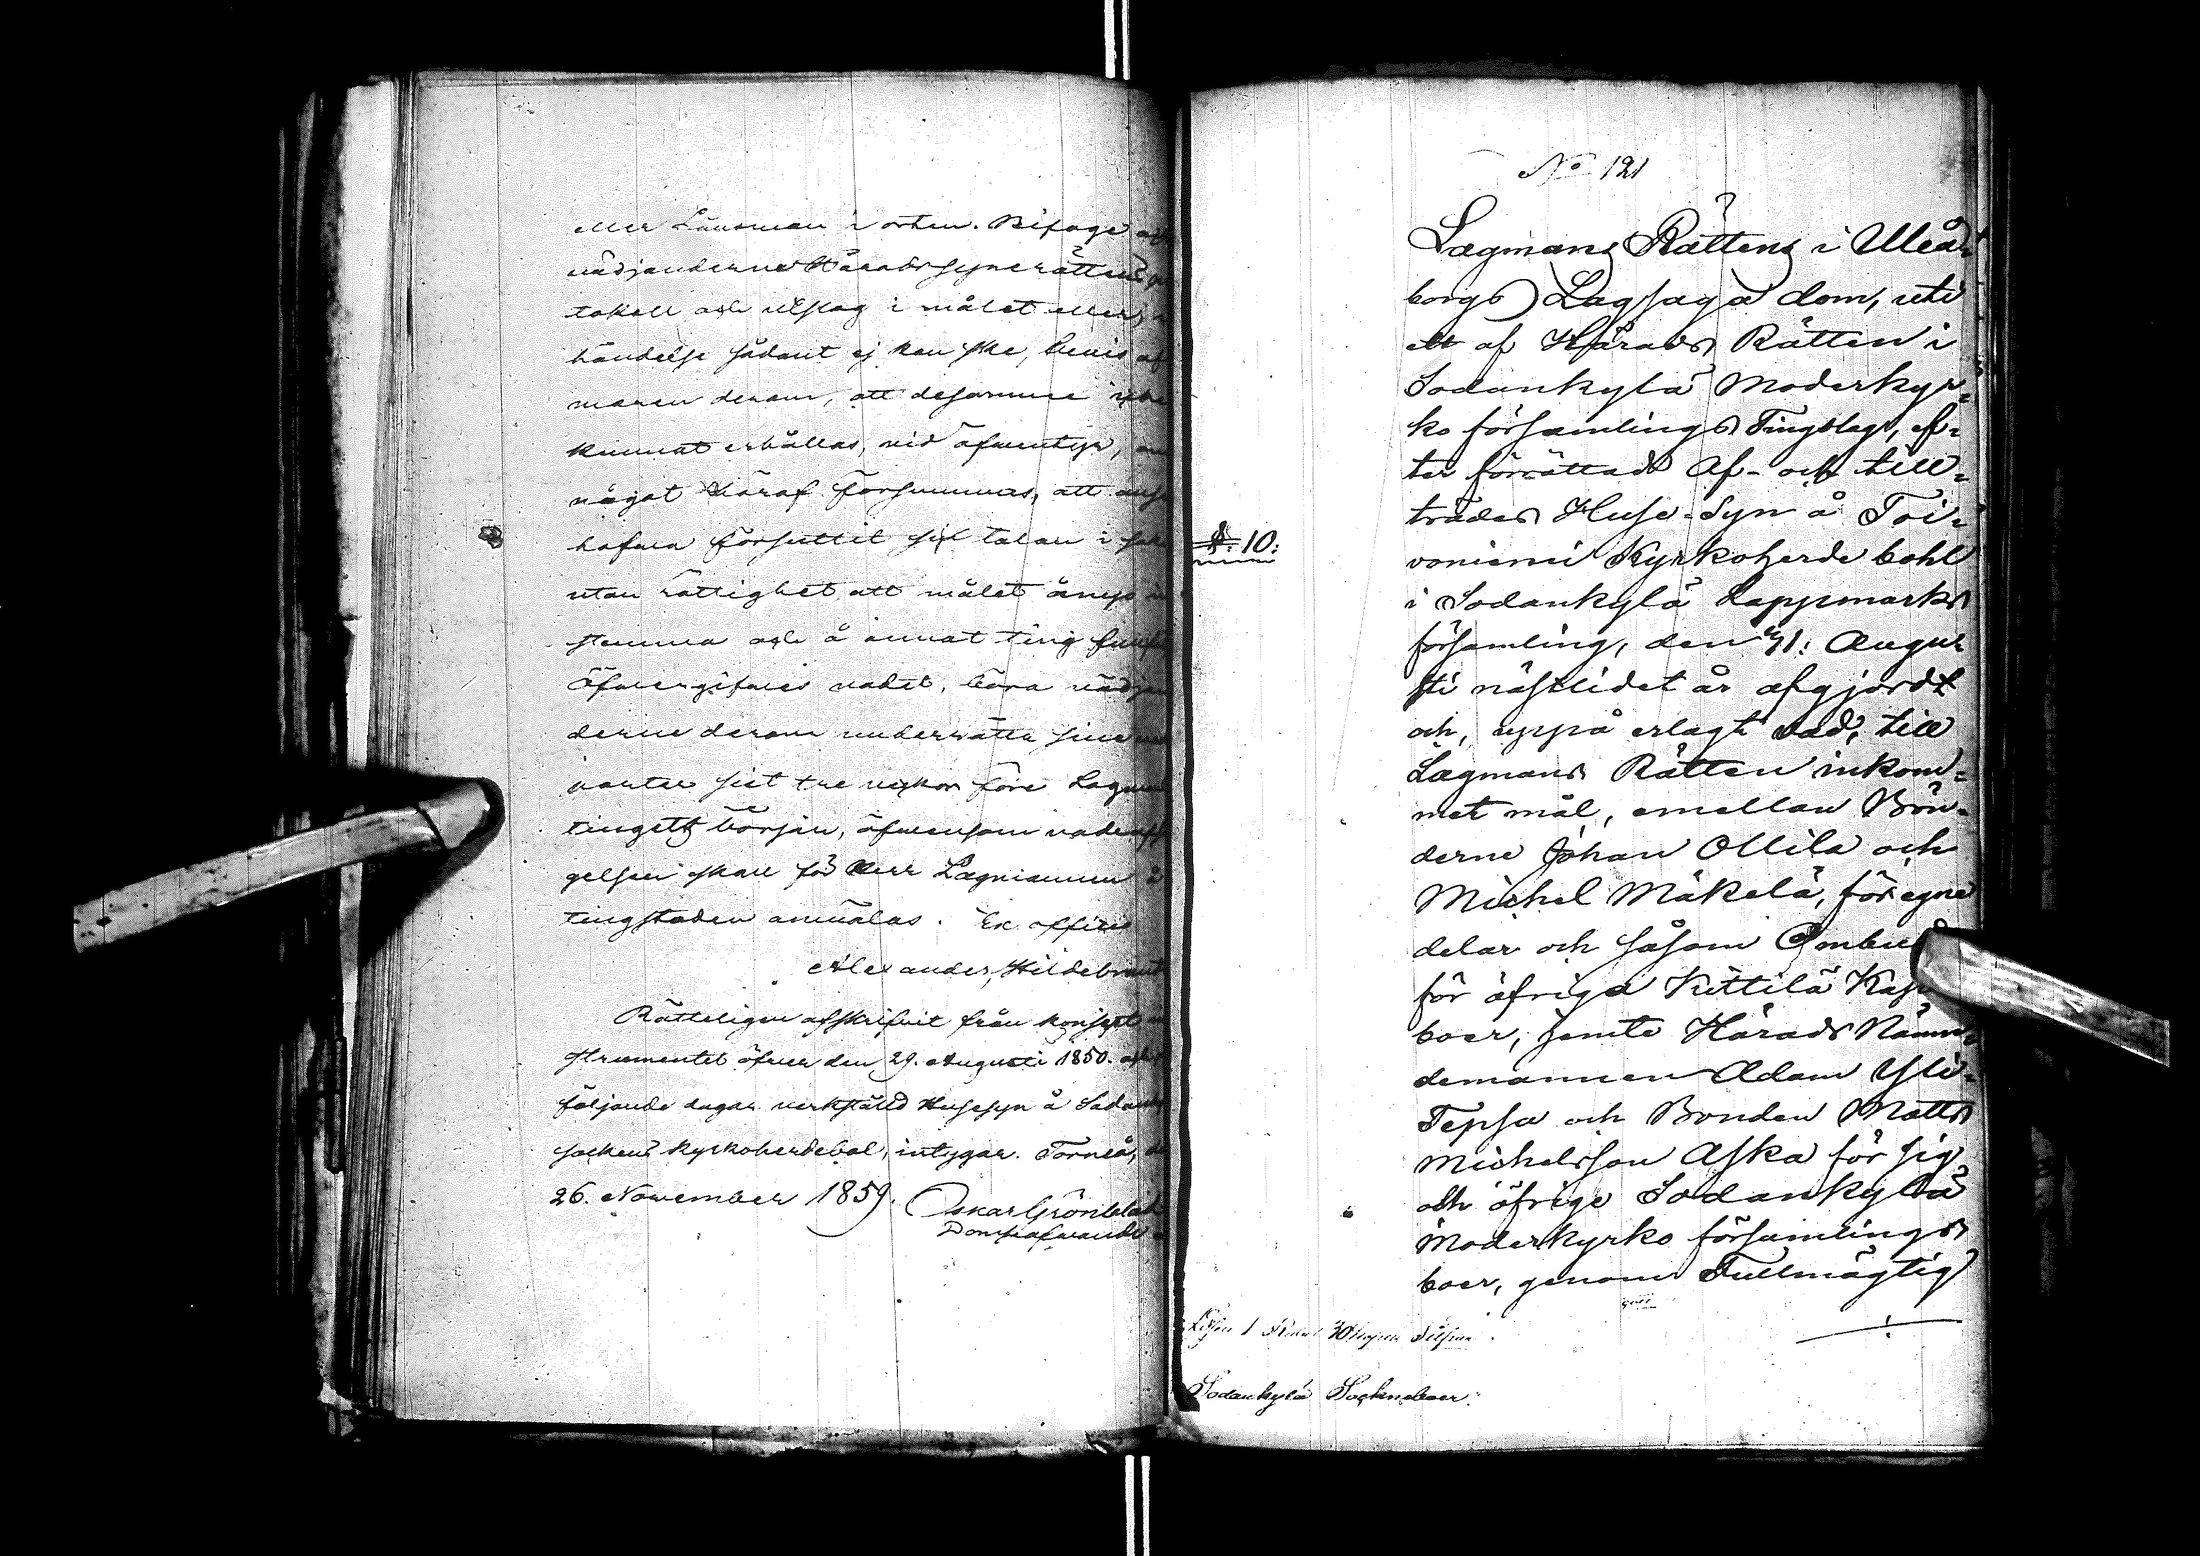 eller Länsman i orten. Bifoge
vädjanderne Häradssynerättens
tokoll och utslag i målet eller,
händelse sådant ej kan ske, bevis af
maren derom, att desamma icke
kunnat erhållas, vid äfventyr,
något häraf försummas, att anse
hafva försuttit sin talan i
utan rättighet att målet ånyo
stemma och å annat ting
Öfvergifves vadet, böra vädjan
derne derom underrätta sine
parter sist tre veckor före Lagmans
tingets början, äfvensom
gelsen skall för Herr Lagmannen å
tingstaden anmälas. Ex officio
Alexander Hildebrandt
Rätteligen afskrifvit från konsept
strumentet öfver den 29. Augusti 1850. och
följande dagar verkställd Husesyn å Sodankylä
sockens kyrkoherdebol, intygar. Torneå, de
26. November 1859. Oskar Grönblad
Domhafvande
No 121
Lagmans Rättens i Uleå-
borgs Lagsaga dom, uti
ett af Härads Rätten i
Sodankylä Moderkyr-
ko församlings Tingslag, ef-
ter förrättad Af- och till-
trädes Huse-Syn å Toi-
voniemi Kyrkoherde bohl
§. 10:
i Sodankylä Lappmarks
församling, den 31: Augu-
sti nästlidet år afgjordt
och, uppå erlagt vad, till
Lagmans Rätten inkom-
met mål, emellan Bön-
derne Johan Ollila och
Michel Mäkelä, för egne
delar och såsom Ombud
för öfriga Kittilä
boer, jemte Härads Nämn-
demannen Adam Yli-
Tepsa och Bonden Matts
Michelsson Aska för sig
och öfrige Sodankylä
Moderkyrko församlings
boer, genom Fullmägtig
Sodankylä Sockneboer.